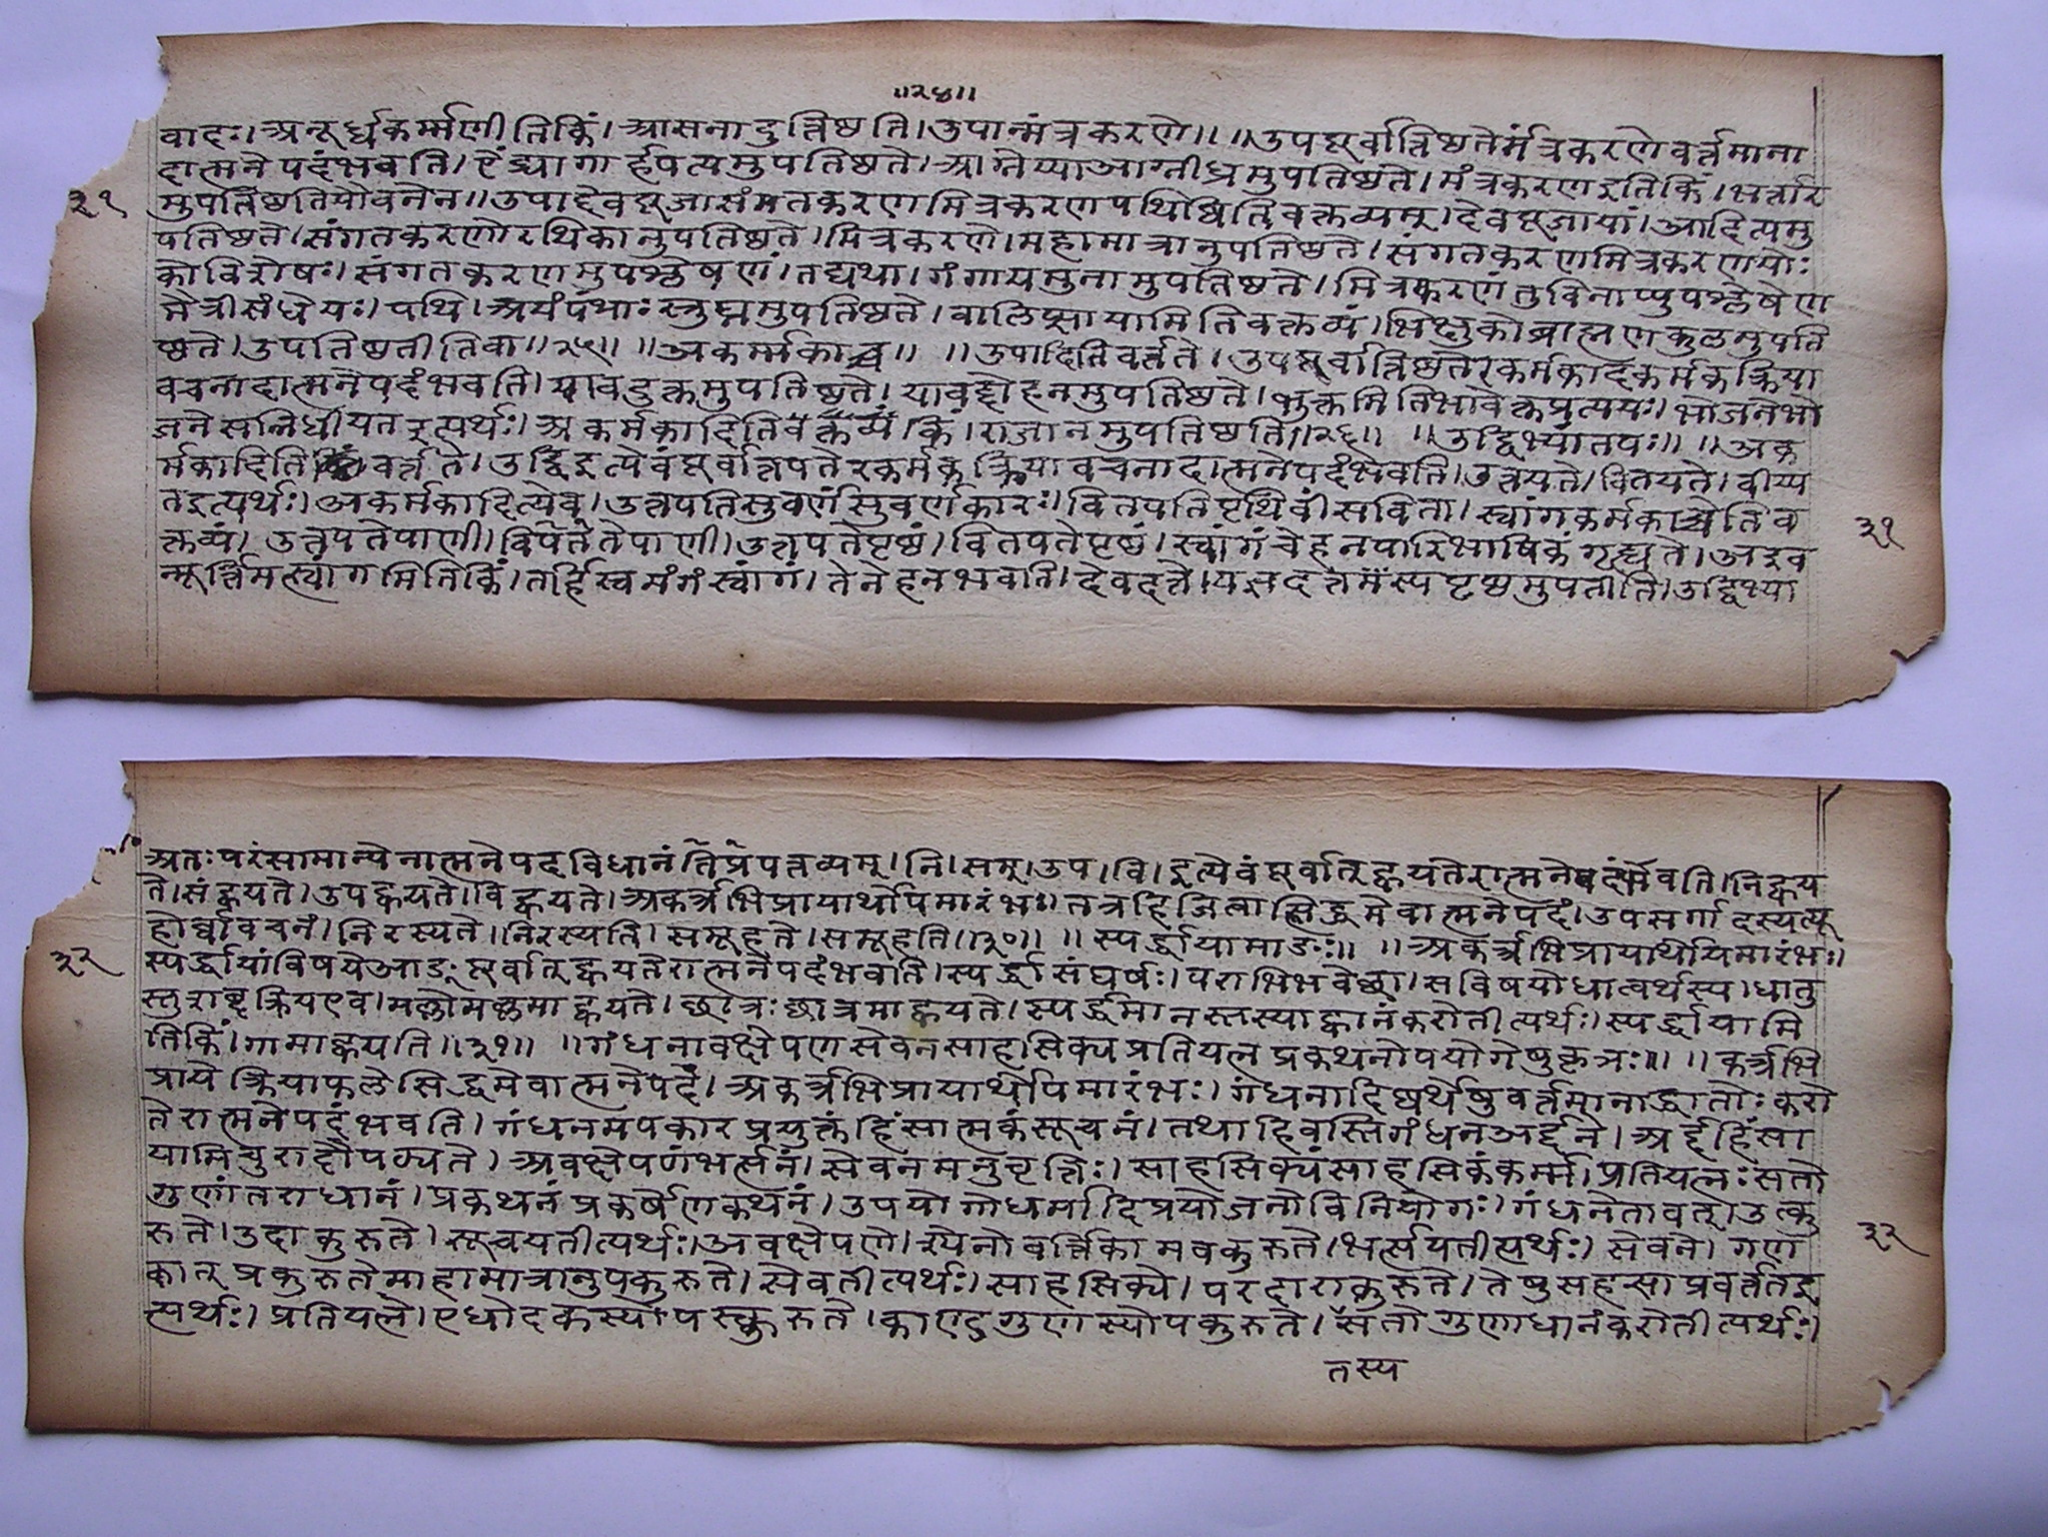 ॥२४॥
वादः। अनूर्ध्वकर्म्मणीतिकिं। आसनादुत्तिष्ठति। उपान्मंत्रकरणे॥ ॥उपपूर्वात्तिष्ठतेर्मंत्रकरणेवर्त्तमाना
दात्मनेपदंभवति। ऐंद्र्यागार्हपत्यमुपतिष्ठते। आग्नेय्याआग्नीध्रमुपतिष्ठते। मंत्रकरणइतिकिं। भर्त्तार
३१
मुपतिष्ठतियौवनेन॥ उपाद्देवपूजासंगतकरणमित्रकरणपथिष्वितिवक्तव्यम्। देवपूजायां। आदित्यमु
पतिष्ठते। संगतकरणे। रथिकानुपतिष्ठते। मित्रकरणे। महामात्रानुपतिष्ठते। संगतकरणमित्रकरणयोः
कोविशेषः। संगतकरणमुपश्लेषणं। तद्यथा। गंगायमुनामुपतिष्ठते। मित्रकरणंतुविनाप्युपश्लेषेण
मैत्रीसंधेयः। पथि। अयंपंथाः स्तुघ्नमुपतिष्ठते। वालिप्सायामितिवक्तव्यं। भिक्षुकोब्राह्मणकुलमुपति
ष्ठते। उपतिष्ठतीतिवा॥२५॥ ॥अकर्म्मकाच्च॥ ॥उपादितिवर्त्तते। उपपूर्वात्तिष्ठतेरकर्मकादकर्मकक्रिया
वचनादात्मनेपदंभवति। यावद्भुक्तमुपतिष्ठते। यावदोदनमुपतिष्ठते। भुक्तमितिभावेक्तप्रत्ययः। भोजनेभो
जनेसन्निधीयतइत्यर्थः। अकर्मकादितिवक्तव्यं। किं। राजानमुपतिष्ठति॥२६॥ ॥उद्विभ्यांतपः॥ ॥अक
र्मकादिति वर्त्तते। उद्विइत्येवंपूर्वात्तपतेरकर्मकक्रियावचनादात्मनेपदंभवति। उत्तपते। वितपते। दीप्य
तइत्यर्थः। अकर्मकादित्येव। उत्तपतिसुवर्णंसुवर्णकारः। वितपतिपृथिवींसविता। स्वांगकर्मकाच्चेतिव
३१
क्तव्यं। उत्तपतेपाणी। वितपतेपाणी। उत्तपतेपृष्ठं। वितपतेपृष्ठं। स्वांगंचेहनपारिभाषिकंगृह्यते। अद्रव
न्मूर्त्तिमत्स्वांगमितिकिं। तर्हिस्वमंगंस्वांगं। तेनेहनभवति। देवदत्तो। यज्ञदत्तस्यपृष्ठमुपतीति। उद्विभ्या
अतः परंसामान्येनात्मनेपदविधानंप्रतिपत्तव्यम्। नि। सम्। उप। वि। इत्येवंपूर्वात्ह्वयतेरात्मनेपदंभवति। निह्वय
ते। संह्वयते। उपह्वयते। विह्वयते। अकर्त्रभिप्रायार्थोयमारंभः। तत्रहिञित्वात्सिद्धमेवात्मनेपदं। उपसर्गादस्यत्यू
होर्वावचनं। निरस्यते। निरस्यति। समूहते। समूहति॥३०॥ ॥स्पर्द्धायामाङः॥ ॥अकर्त्रभिप्रायार्थोयमारंभः।
३२
स्पर्द्धायांविषयेआङ्पूर्वात्ह्वयतेरात्मनेपदंभवति। स्पर्द्धासंघर्षः। पराभिभवेछा। सविषयोधात्वर्थस्य। धातु
स्तुशब्दक्रियएव। मल्लोमल्लमाह्वयते। छात्रः छात्रमाह्वयते। स्पर्द्धमानस्तस्याह्वानंकरोतीत्यर्थः। स्पर्द्धायामि
तिकिं। गामाह्वयति॥३१॥ ॥गंधनावक्षेपणसेवनसाहसिक्यप्रतियत्नप्रकथनोपयोगेषुकृञः॥ ॥कर्त्रभि
प्रायेक्रियाफलेसिद्धमेवात्मनेपदं। अकर्त्रभिप्रायार्थोयमारंभः। गंधनादिष्वर्थेषुवर्तमानाद्धातोः करो
तेरात्मनेपदंभवति। गंधनमपकारप्रयुक्तंहिंसात्मकंसूचनं। तथाहिवस्तिगंधनअर्द्दने। अर्द्दहिंसा
यामिचुरादौपठ्यते। अवक्षेपणंभर्त्सनं। सेवनमनुवृत्तिः। साहसिक्यंसाहसिकंकर्म्म। प्रतियत्नः सतो
गुणांतराधानं। प्रकथनंप्रकर्षेणकथनं। उपयोगोधर्मादिप्रयोजनोविनियोगः। गंधनेतावत्। उत्कु
३२
रुते। उदाकुरुते। सूचयतीत्यर्थः। अवक्षेपणे। श्येनोवर्त्तिकामवकुरुते। भर्त्सयतीत्यर्थः। सेवने। गण
कान्प्रकुरुतेमाहामात्रानुपकुरुते। सेवतीत्यर्थः। साहसिक्ये। परदाराकुरुते। तेषुसहसाप्रवर्त्ततइ
त्यर्थः। प्रतियत्ने। एधोदकस्योपस्कुरुते। काण्डगुणस्योपकुरुते। सतोगुणाधानंकरोतीत्यर्थः।
तस्य